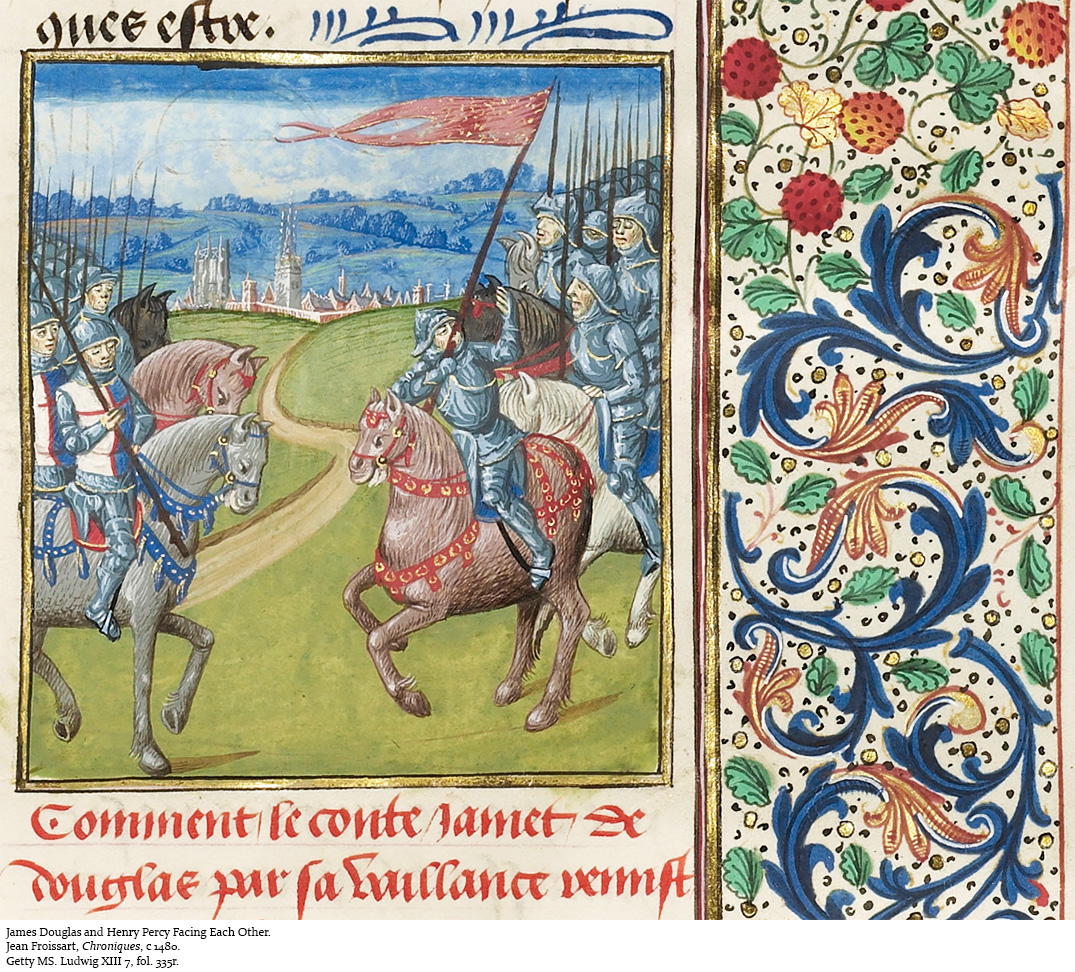 ques estre.
Comment le conte Jamet de
douglas par sa vaillance
James Douglas and Henry Percy Facing Each Other.
Jean Froissart, Chroniques, c 1480.
Getty MS. Ludwig XIII 7, fol. 335r.